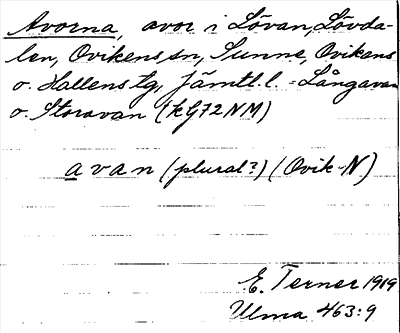 Avorna, avor i Lövan, Lövda-
len, Ovikens sn, Sunne, Ovikens
o. Hallens tg, Jämtl. l. = Långavan
o. Storavan (kG72NM)
avan (plural?) (Ovik-N)
E. Terner 1919
Ulma 463:9